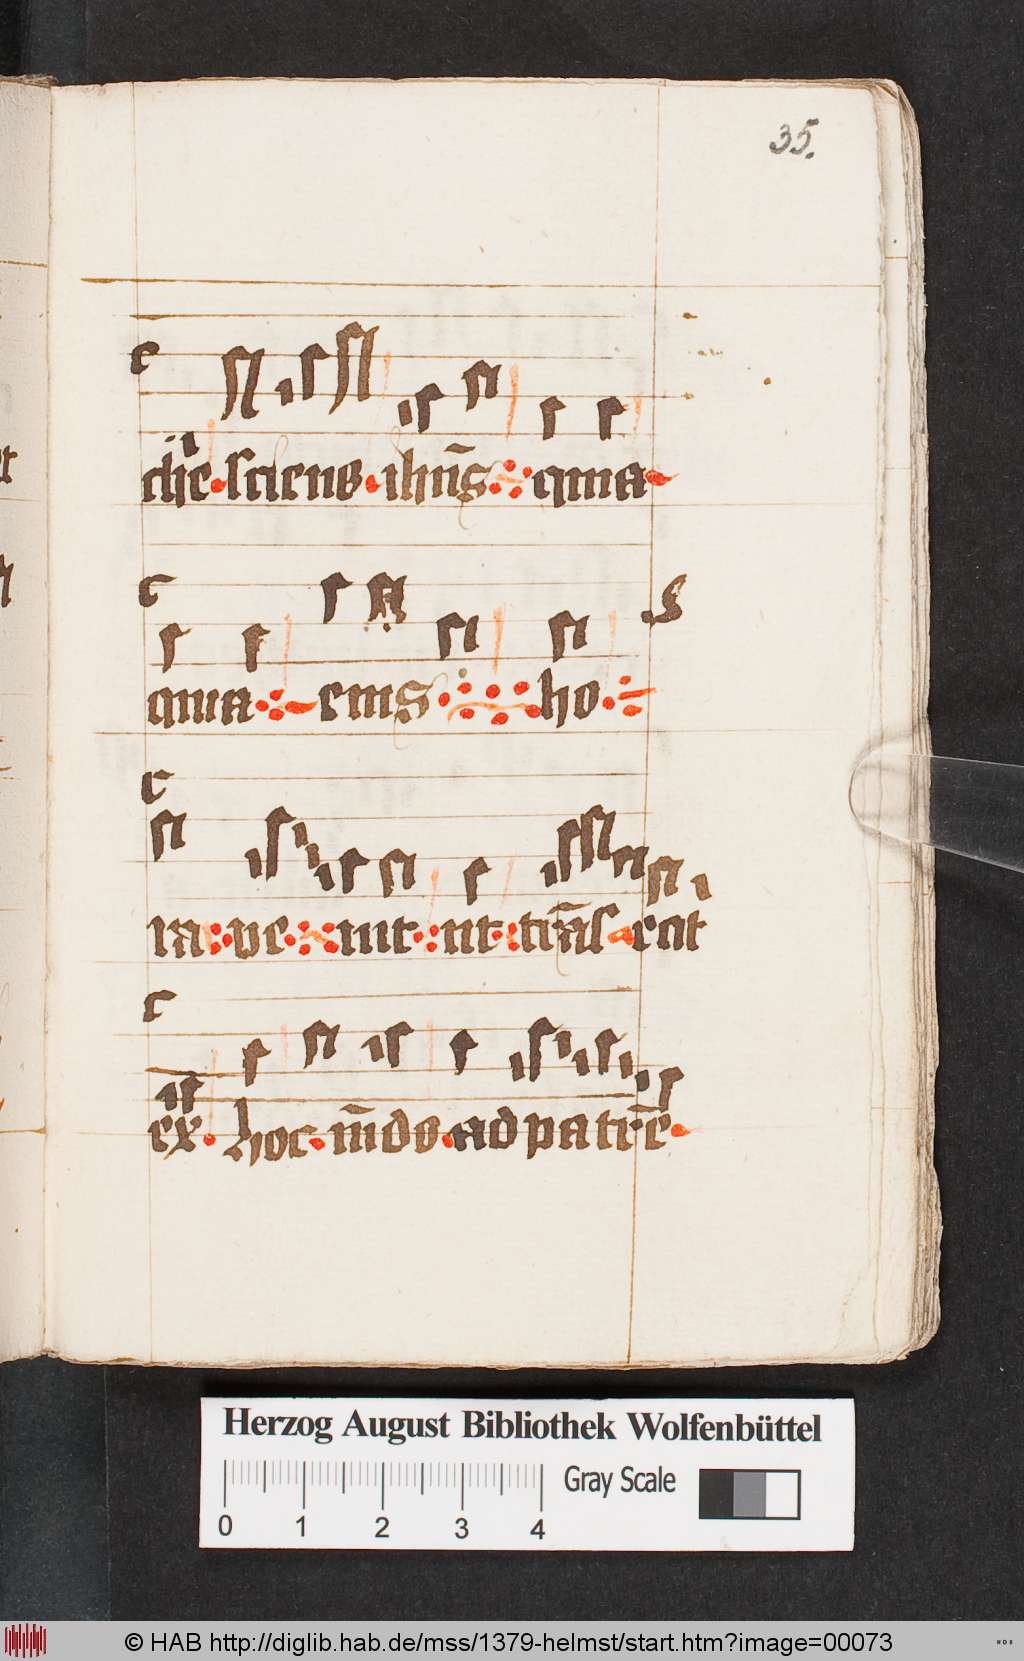 35.
c
che · sciens · ihūs · quia
c
quia · eius · ho ·
c
ra · ve · nit · ut · trās eat
c
ex · hoc · mūdo · ad patrē ·
Herzog August Bibliothek Wolfenbüttel
0 1 2 3 4 Gray Scale
© HAB http://diglib.hab.de/mss/1379-helmst/start.htm?image=00073